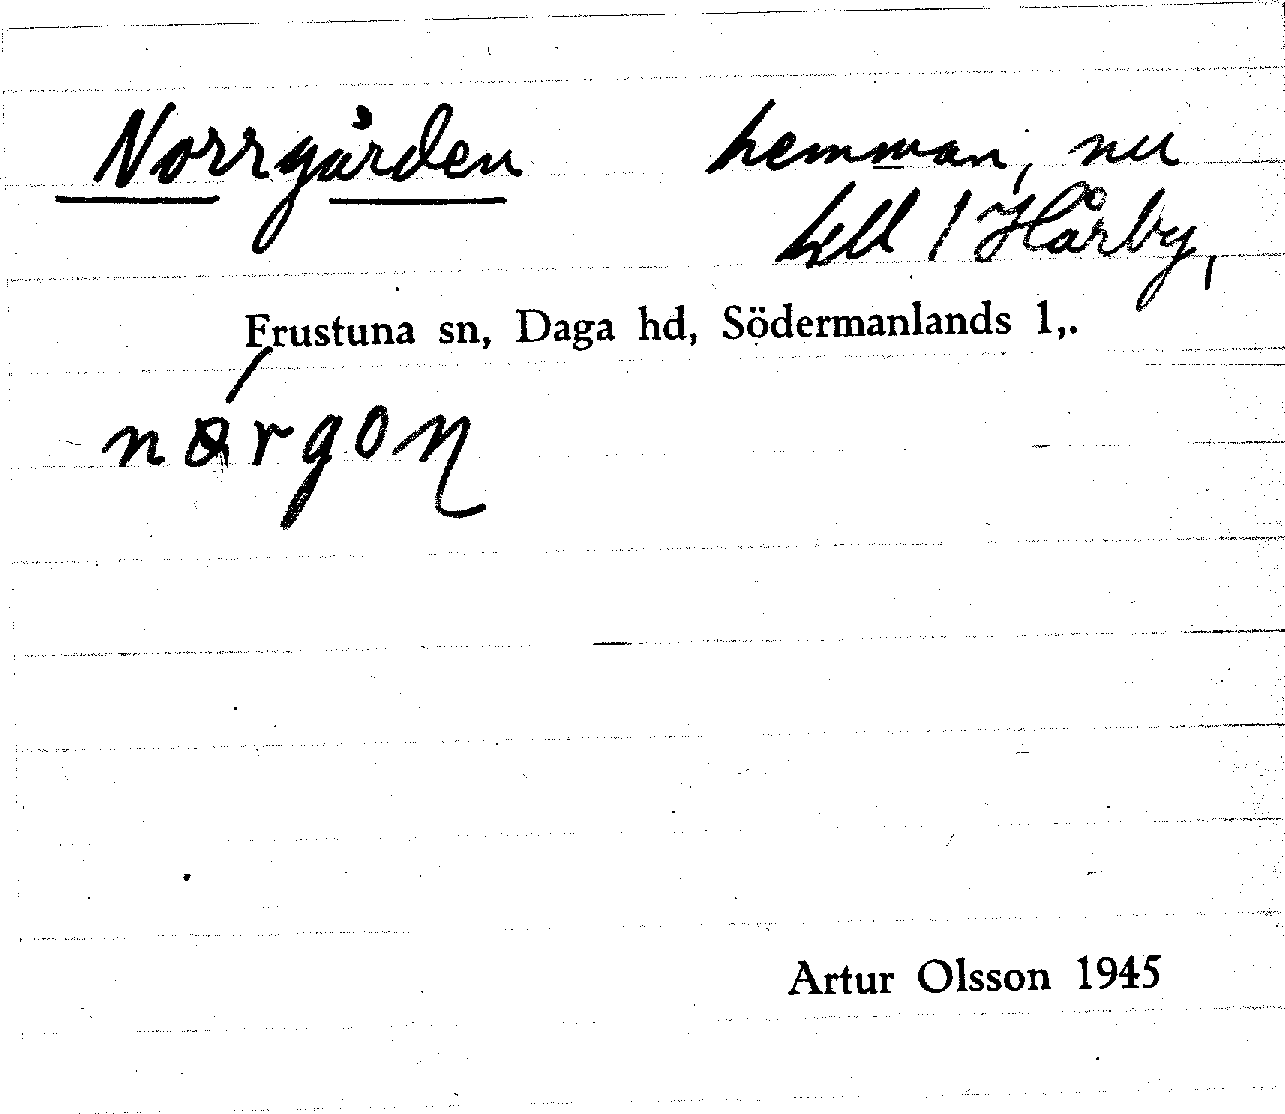 Norrgården hemman, nu
/ Hårby,
Frustuna sn, Daga hd, Södermanlands l,.
Artur Olsson 1945